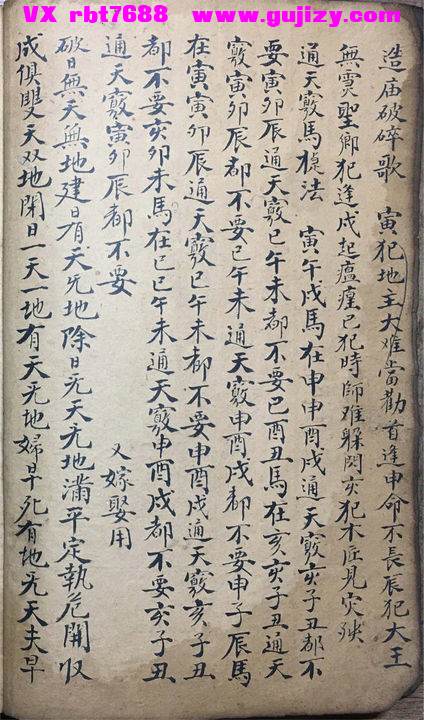 VX rbt7688 www.gujizy.com
造庙破碎歌 寅犯地主大难當勸首逢申命不長辰犯大王
無灵聖卯犯逢戌起瘟瘟巳犯時師难躲閃亥犯木匠見灾殃
通天竅馬椗法 寅午戌馬在申申酉戌通天竅亥子丑都不
要寅卯辰通天竅巳午未都不要巳酉丑馬在亥亥子丑通天
竅寅卯辰都不要巳午未通天竅申酉戌都不要申子辰馬
在寅寅卯辰通天竅巳午未都不要申酉戌通天竅亥子丑
都不要亥卯未馬在巳巳午未通天竅申酉戌都不要亥子丑
通天竅寅卯辰都不要 又嫁娶用
破日無天無地建日有天无地除日无天无地滿平定執危開收
成俱雙天双地閉日一天一地有天无地婦早死有地无天夫早